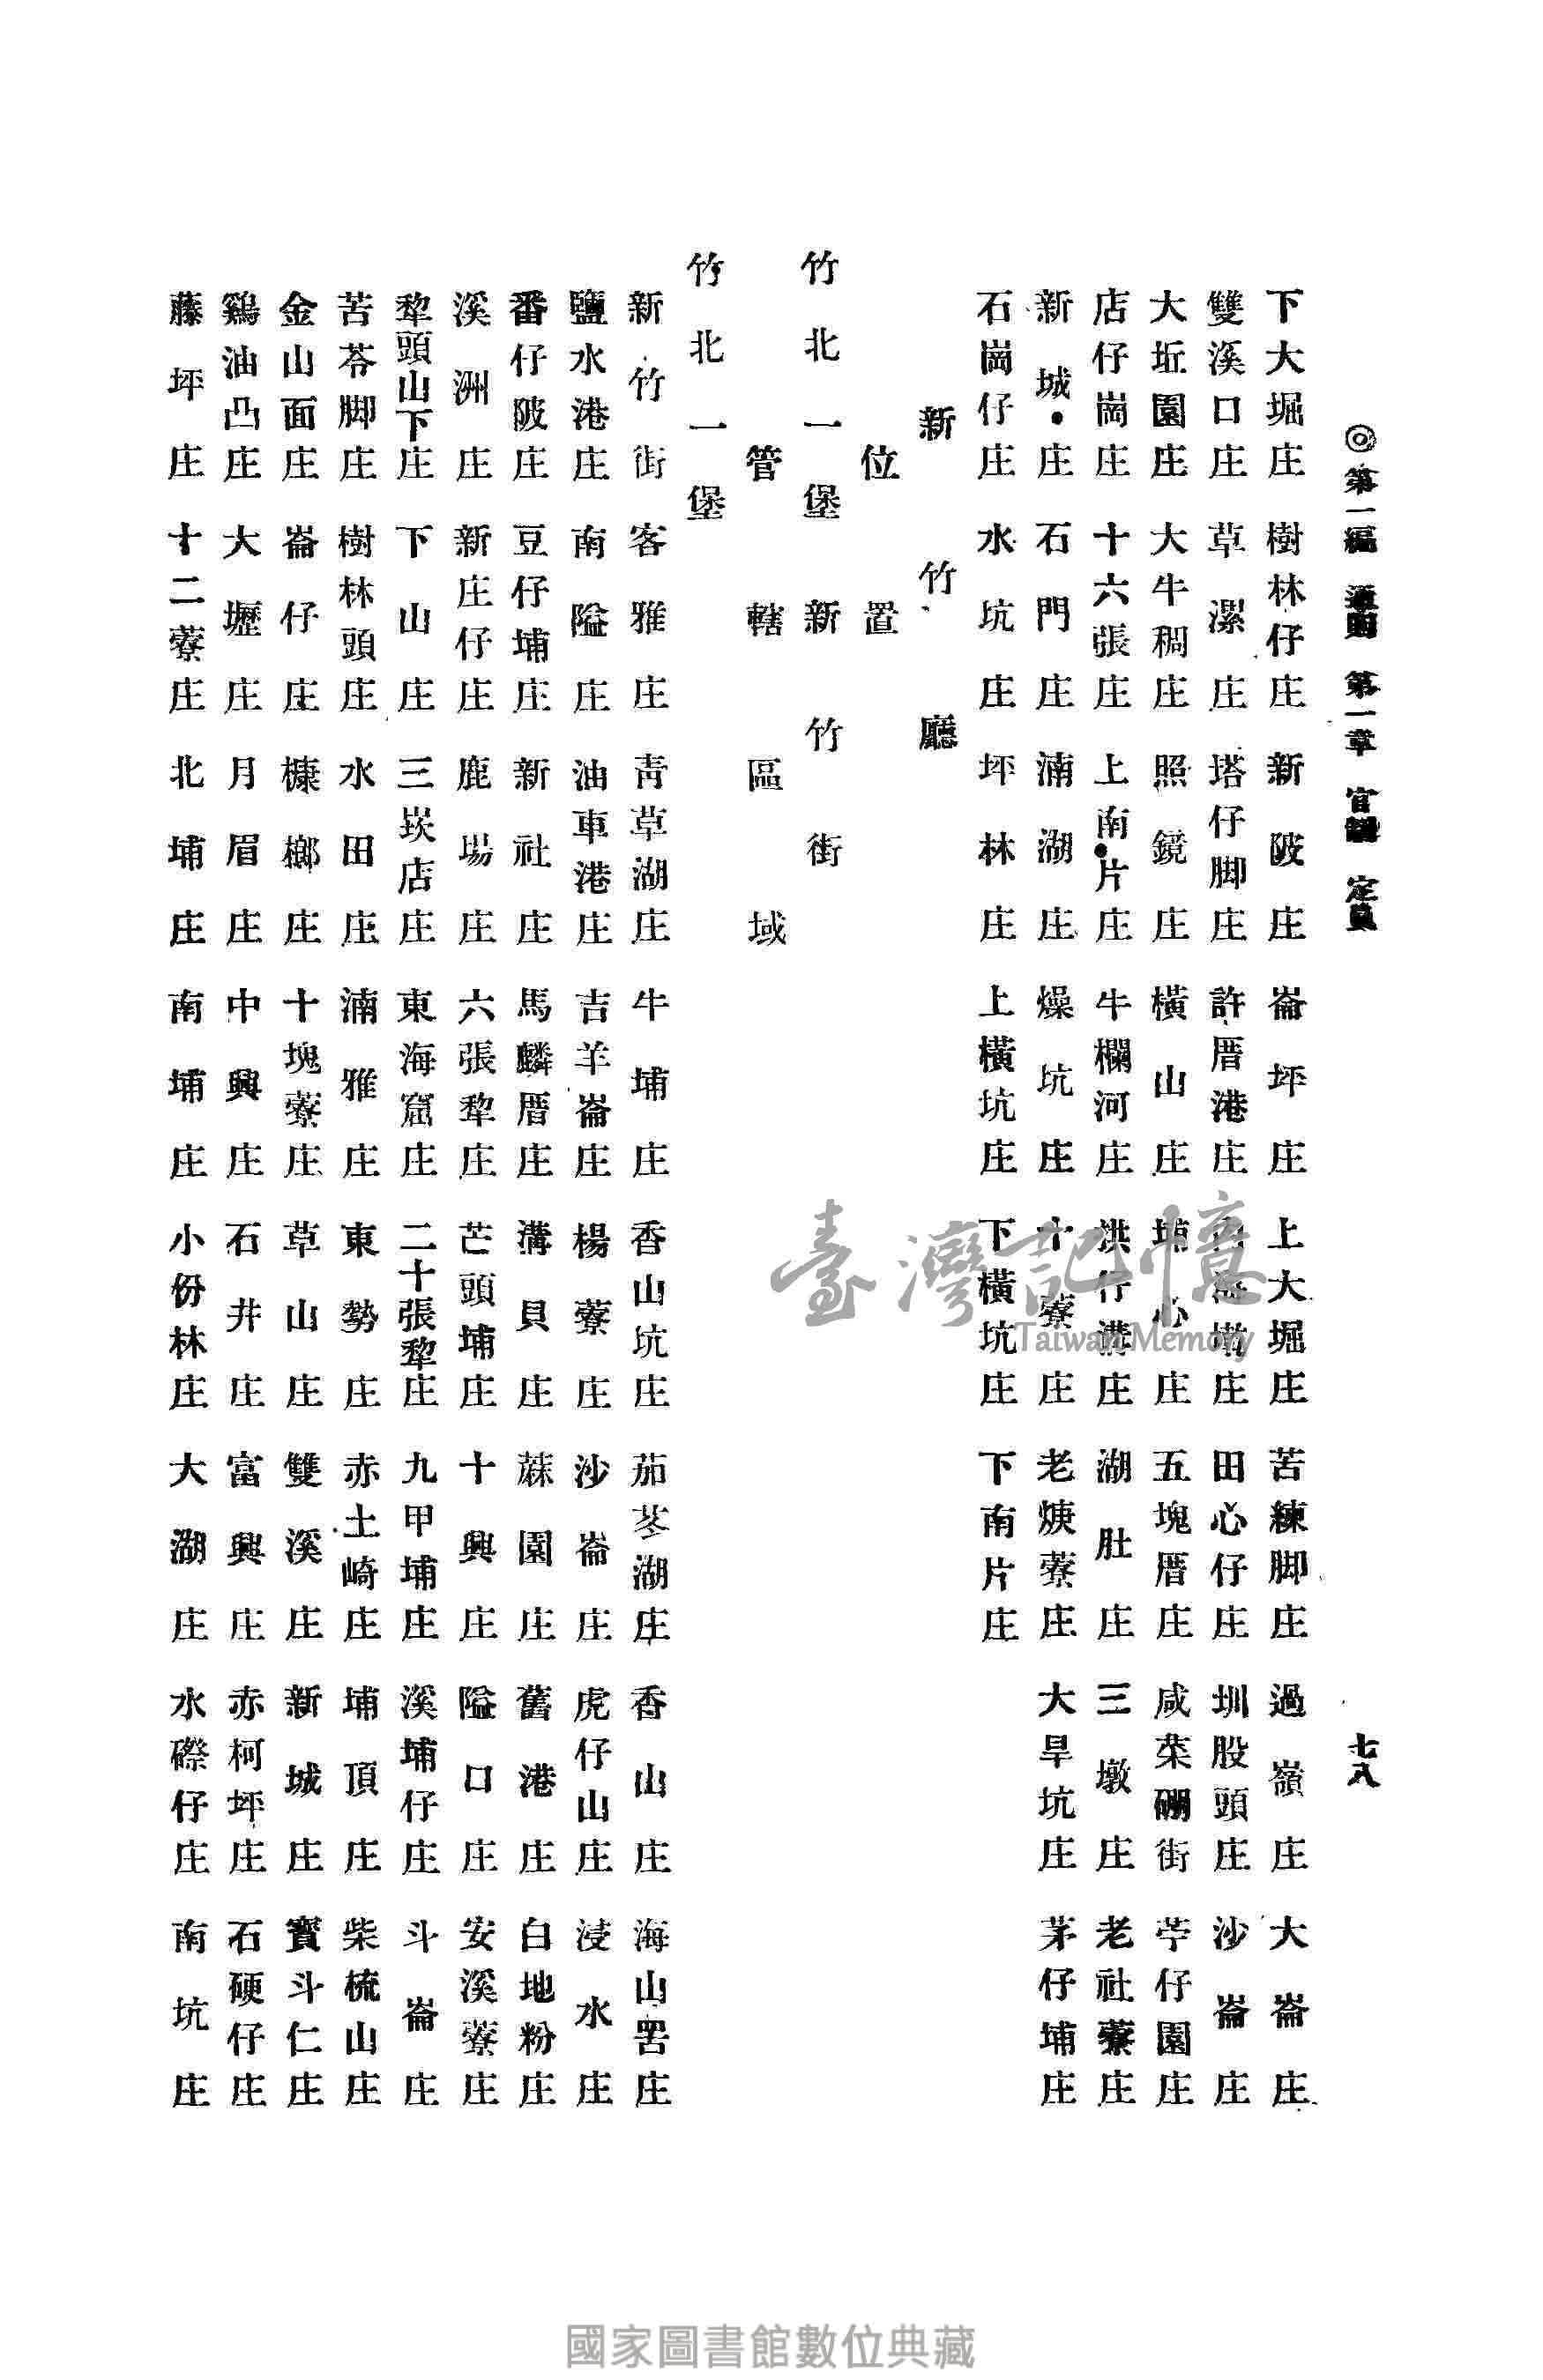 ◎第一編 通則 第一章 官制 定員 七八
下大堀庄 樹林仔庄 新陂庄 崙坪庄 上大堀庄 苦練脚庄 過嶺庄 大崙庄
雙溪口庄 草漯庄 塔仔脚庄 許厝港庄 海墘庄 田心仔庄 圳股頭庄 沙崙庄
大坵園庄 大牛稠庄 照鏡庄 橫山庄 埔心庄 五塊厝庄 咸菜硼街 苧仔園庄
店仔崗庄 十六張庄 上南片庄 牛欄河庄 拱仔溝庄 湖肚庄 三墩庄 老社藔庄
新城庄 石門庄 湳湖庄 燥坑庄 十藔庄 老焿藔庄 大旱坑庄 茅仔埔庄
石崗仔庄 水坑庄 坪林庄 上橫坑庄 下橫坑庄 下南片庄
新竹廳
位置
竹北一堡新竹街
管轄區域
竹北一堡
新竹街 客雅庄 靑草湖庄 牛埔庄 香山坑庄 茄苳湖庄 香山庄 海山罟庄
鹽水港庄 南隘庄 油車港庄 吉羊崙庄 楊藔庄 沙崙庄 虎仔山庄 浸水庄
番仔陂庄 豆仔埔庄 新社庄 馬麟厝庄 溝貝庄 蔴園庄 舊港庄 白地粉庄
溪洲庄 新庄仔庄 鹿場庄 六張犂庄 芒頭埔庄 十興庄 隘口庄 安溪藔庄
犂頭山下庄 下山庄 三崁店庄 東海窟庄 二十張犂庄 九甲埔庄 溪埔仔庄 斗崙庄
苦苓脚庄 樹林頭庄 水田庄 湳雅庄 東勢庄 赤土崎庄 埔頂庄 柴梳山庄
金山面庄 崙仔庄 槺榔庄 十塊藔庄 草山庄 雙溪庄 新城庄 寳斗仁庄
鷄油凸庄 大壢庄 月眉庄 中興庄 石井庄 富興庄 赤柯坪庄 石硬仔庄
藤坪庄 十二藔庄 北埔庄 南埔庄 小份林庄 大湖庄 水磜仔庄 南坑庄
臺灣記憶
Taiwan Memory
國家圖書館數位典藏